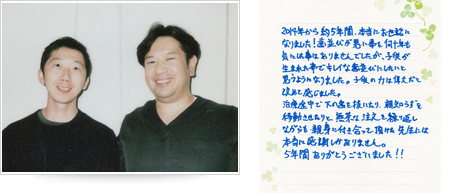 2019年から約5年間、本当にお世話に
なりました！歯並びが悪い事を何十年も
気には事はありませんでしたが、子供が
生まれた事でキレイな歯並びにしたいと
思うようになりました。子供の力は偉大だと
改めて感じました。
治療途中で下の歯を抜いたり、親知らずを
移動させたりと、無茶な注文を繰り返し
ながらも親身に付き合って頂けた先生には
本当に感謝しかありません。
5年間ありがとうございました！！